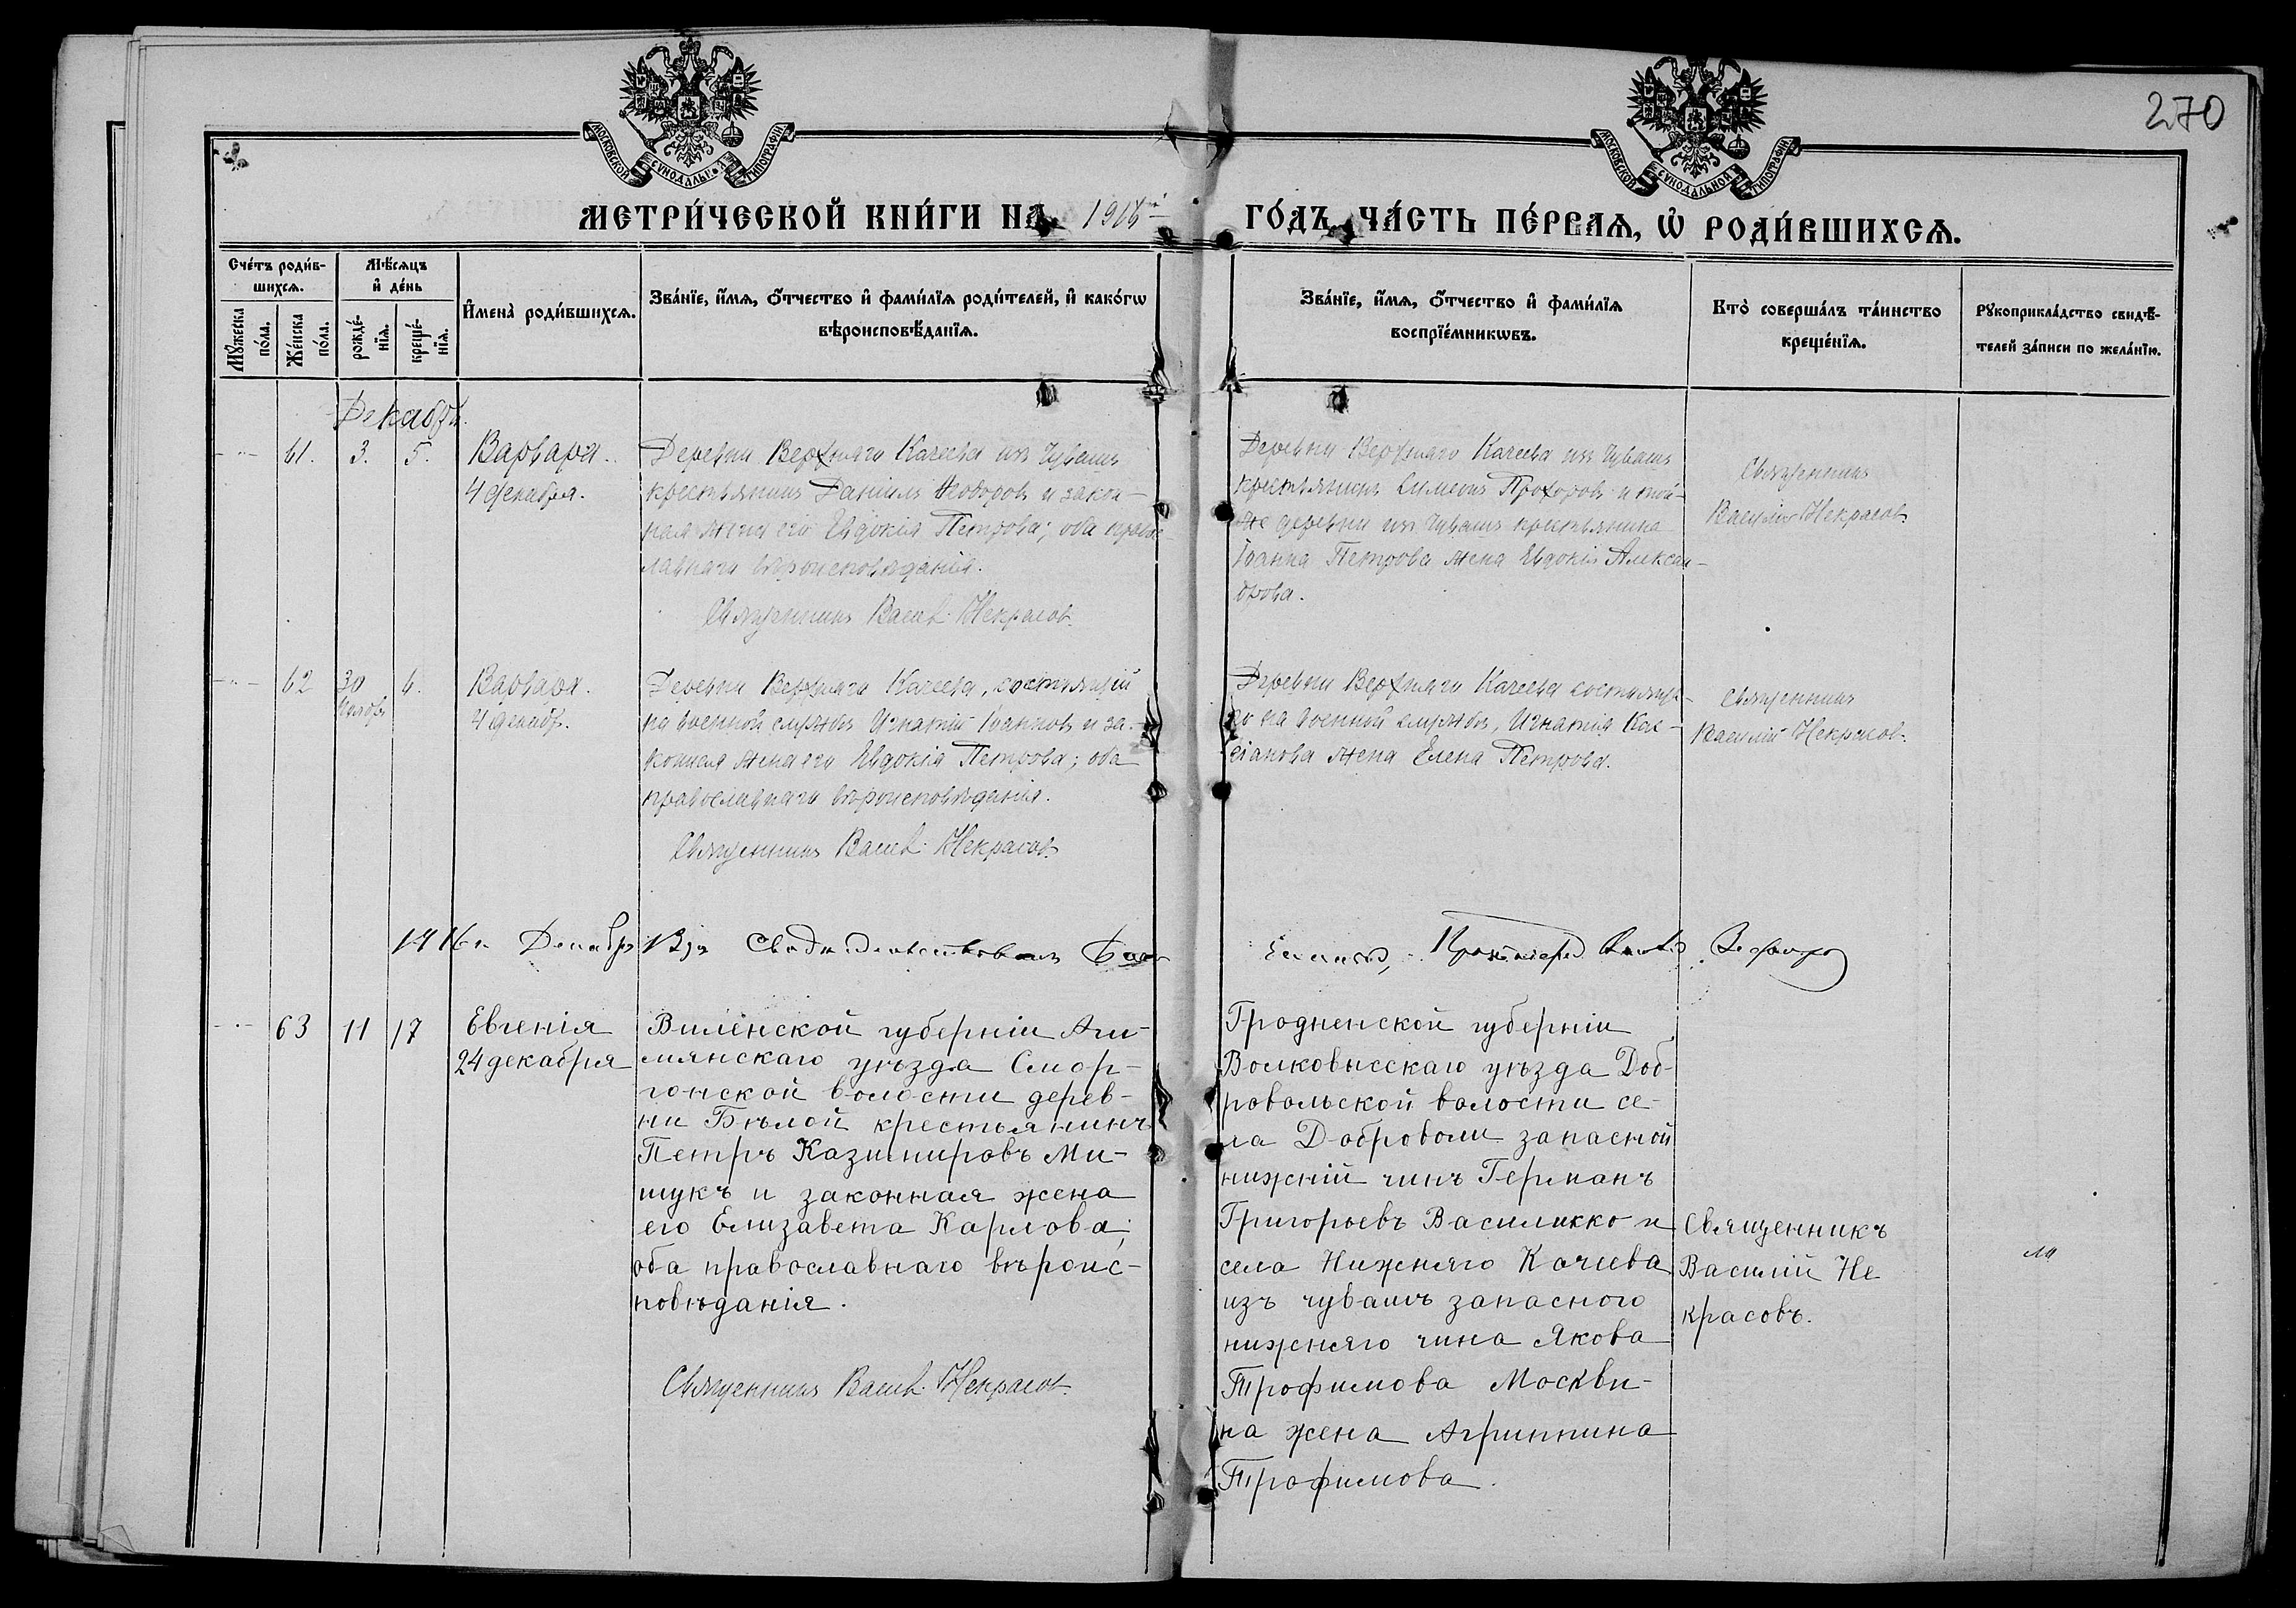 270
МОСКОВСКОЙ СУНОДАЛЬНОЙ ТИПОГРАФІИ
МОСКОВСКОЙ СУНОДАЛЬНОЙ ТИПОГРАФІИ
МЕТРИ́ЧЕСКОЙ КНИ́ГИ НА 1916й ГО́ДЪ, ЧА́СТЬ ПЕ́РВАѦ, Ѡ҆ РОДИ́ВШИХСѦ.
Сче́тъ роди́в-
шихсѧ.
Мѣ́сѧцъ
и҆ де́нь
Мꙋ́жеска
по́ла.
Же́нска
по́ла.
рожде́-
нїѧ.
креще́-
нїѧ.
И҆мена̀ роди́вшихсѧ.
Зва́нїе, и҆́мѧ, ѻ҆́тчество и҆ фами́лїѧ роди́телей, и҆ како́гѡ
вѣроисповѣ́данїѧ.
Зва́нїе, и҆́мѧ, ѻ҆́тчество и҆ фами́лїѧ
воспрїе́мникѡвъ.
Кто̀ соверша́лъ та́инство
креще́нїѧ.
Рꙋкоприкла́дство свидѣ́-
телей за́писи по жела́нїю.
Декабрь.
61.
3.
5.
Варвара.
4 декабря.
Деревни Верхняго Качеева изъ чувашъ
крестьянинъ Даніилъ Ѳеодоровъ и закон-
ная жена его Евдокія Петрова; оба право-
славнаго вѣроисповѣданія.
Священникъ Васил. Некрасовъ.
Деревни Верхняго Качеева изъ чувашъ
крестьянинъ Симеонъ Прохоровъ и той-
же деревни изъ чувашъ крестьянина
Іоанна Петрова жена Евдокія Алексан-
дрова.
Священникъ
Василій Некрасовъ
62
30
ноябр.
6.
Варвара.
4 декабр.
Деревни Верхняго Качеева, состоящій
на военной службѣ Игнатій Іоанновъ и за-
конная жена его Евдокія Петрова; оба
православнаго вѣроисповѣданія.
Священникъ Васил. Некрасовъ.
Деревни Верхняго Качеева состояща-
го на военной службѣ, Игнатія Кас-
сіанова жена Елена Петрова.
Священникъ
Василій Некрасовъ.
1916 г. Декабр. Свидѣтельствовалъ
63
11
17
Евгенія
24 декабря
Виленской губерніи Аш-
мянскаго уѣзда Смор-
гонской волости дерев-
ни Бѣлой крестьянинъ
Петръ Казимировъ Ми-
шукъ и законная жена
его Елизавета Карлова;
оба православнаго вѣроис-
повѣданія.
Священникъ Васил. Некрасовъ.
Гродненской губерніи
Волковысскаго уѣзда Доб-
ровольской волости се-
ла Доброволи запасной
нижній чинъ Германъ
Григорьевъ Василикко и
села Нижняго Качеева
изъ чувашъ запасного
нижняго чина Якова
Трофимова Москви-
на жена Агриппина
Трофимова.
Священникъ
Василій Не
красовъ.